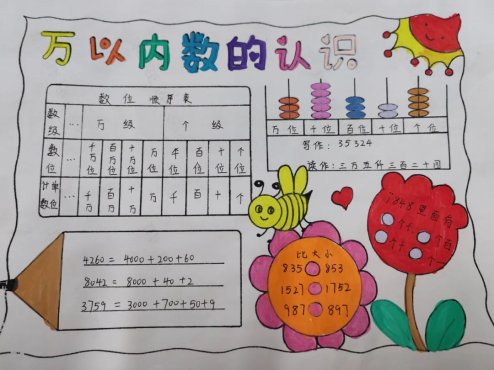 万以内数的认识
数位顺序表
数级 … 万级 个级
数位 … 千万位 百万位 十万位 万位 千位 百位 十位 个位
计单数位 … 千万 百万 十万 万 千 百 十 个
万位 千位 百位 十位 个位
写作：35324
读作：三万五仟三百二十四
4260 = 4000+200+60
8042 = 8000+40+2
3759 = 3000+700+50+9
比大小
835 853
1527 1752
987 897
1848里面有
个千 个百
个十 个一